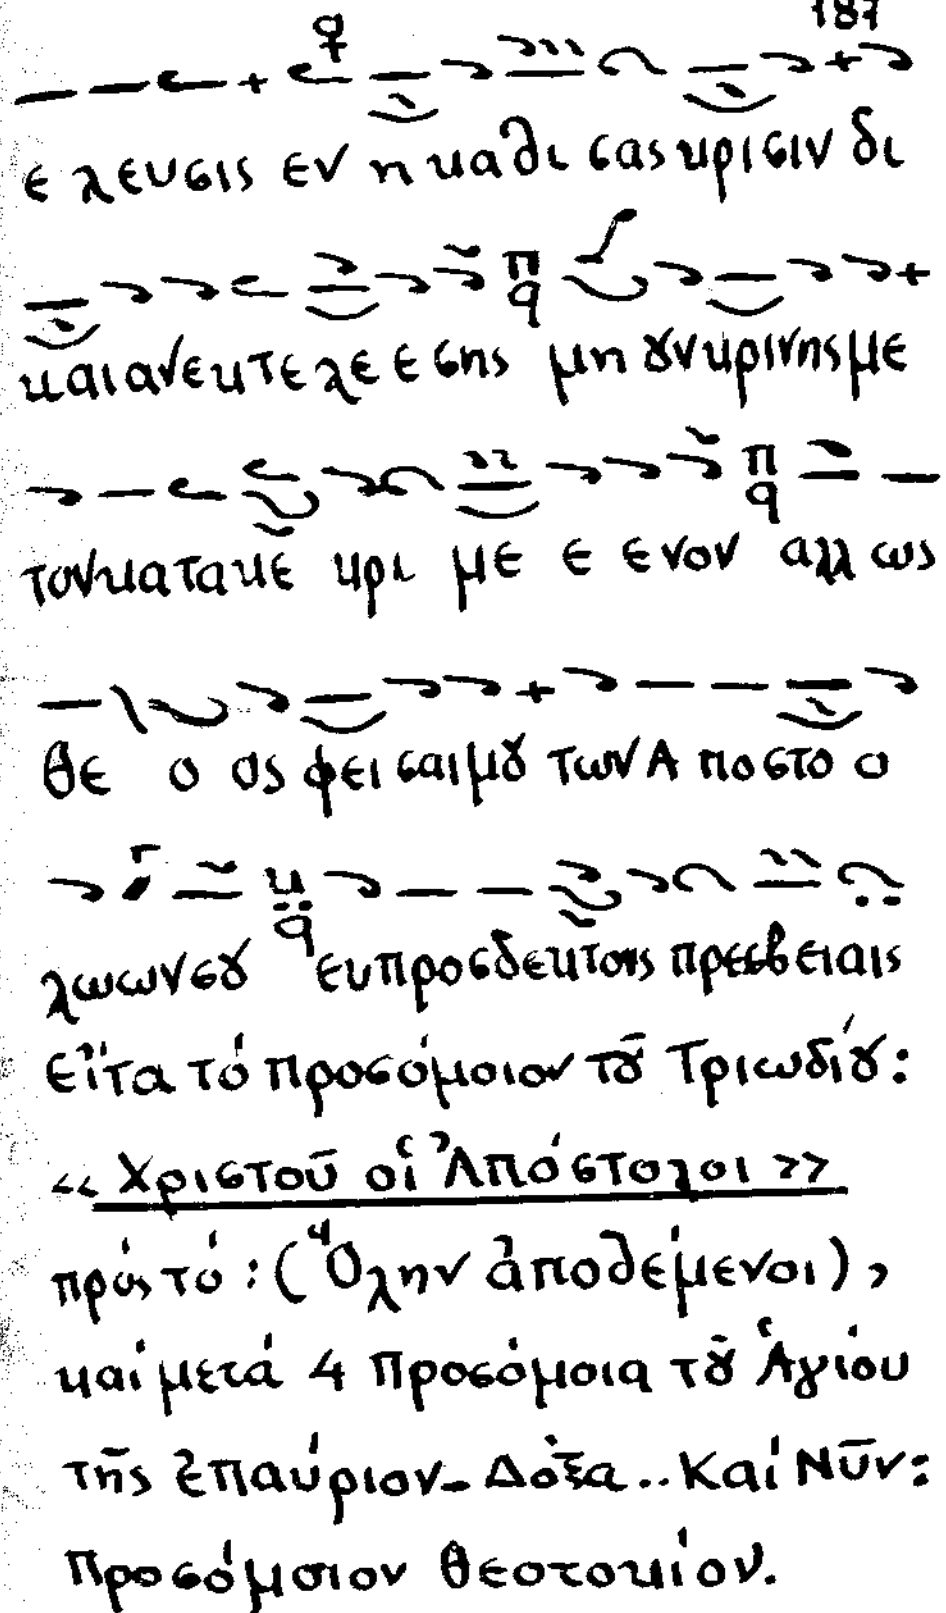 187
ε λευσις εν η καθι σας κρισιν δι
και αν εκτελε εσης μη ȣν κρινης με
τον κατακε κρι με ε ενον αλλ ως
θε ο ος φεισαι μȣ των Α ποστο ο
λωων σȣ ευπροσδεκτοις πρεσβειαις
Εἶτα τό προσόμοιον τȣ͂ Τριωδίȣ:
«Χριστοῦ οἱ Ἀπόστολοι»
πρός τό: (Ὅλην ἀποθέμενοι),
καί μετά 4 Προσόμοια τȣ͂ Ἁγίου
τῆς ἐπαύριον.- Δόξα.. Καί Νῦν:
Προσόμοιον Θεοτοκίον.